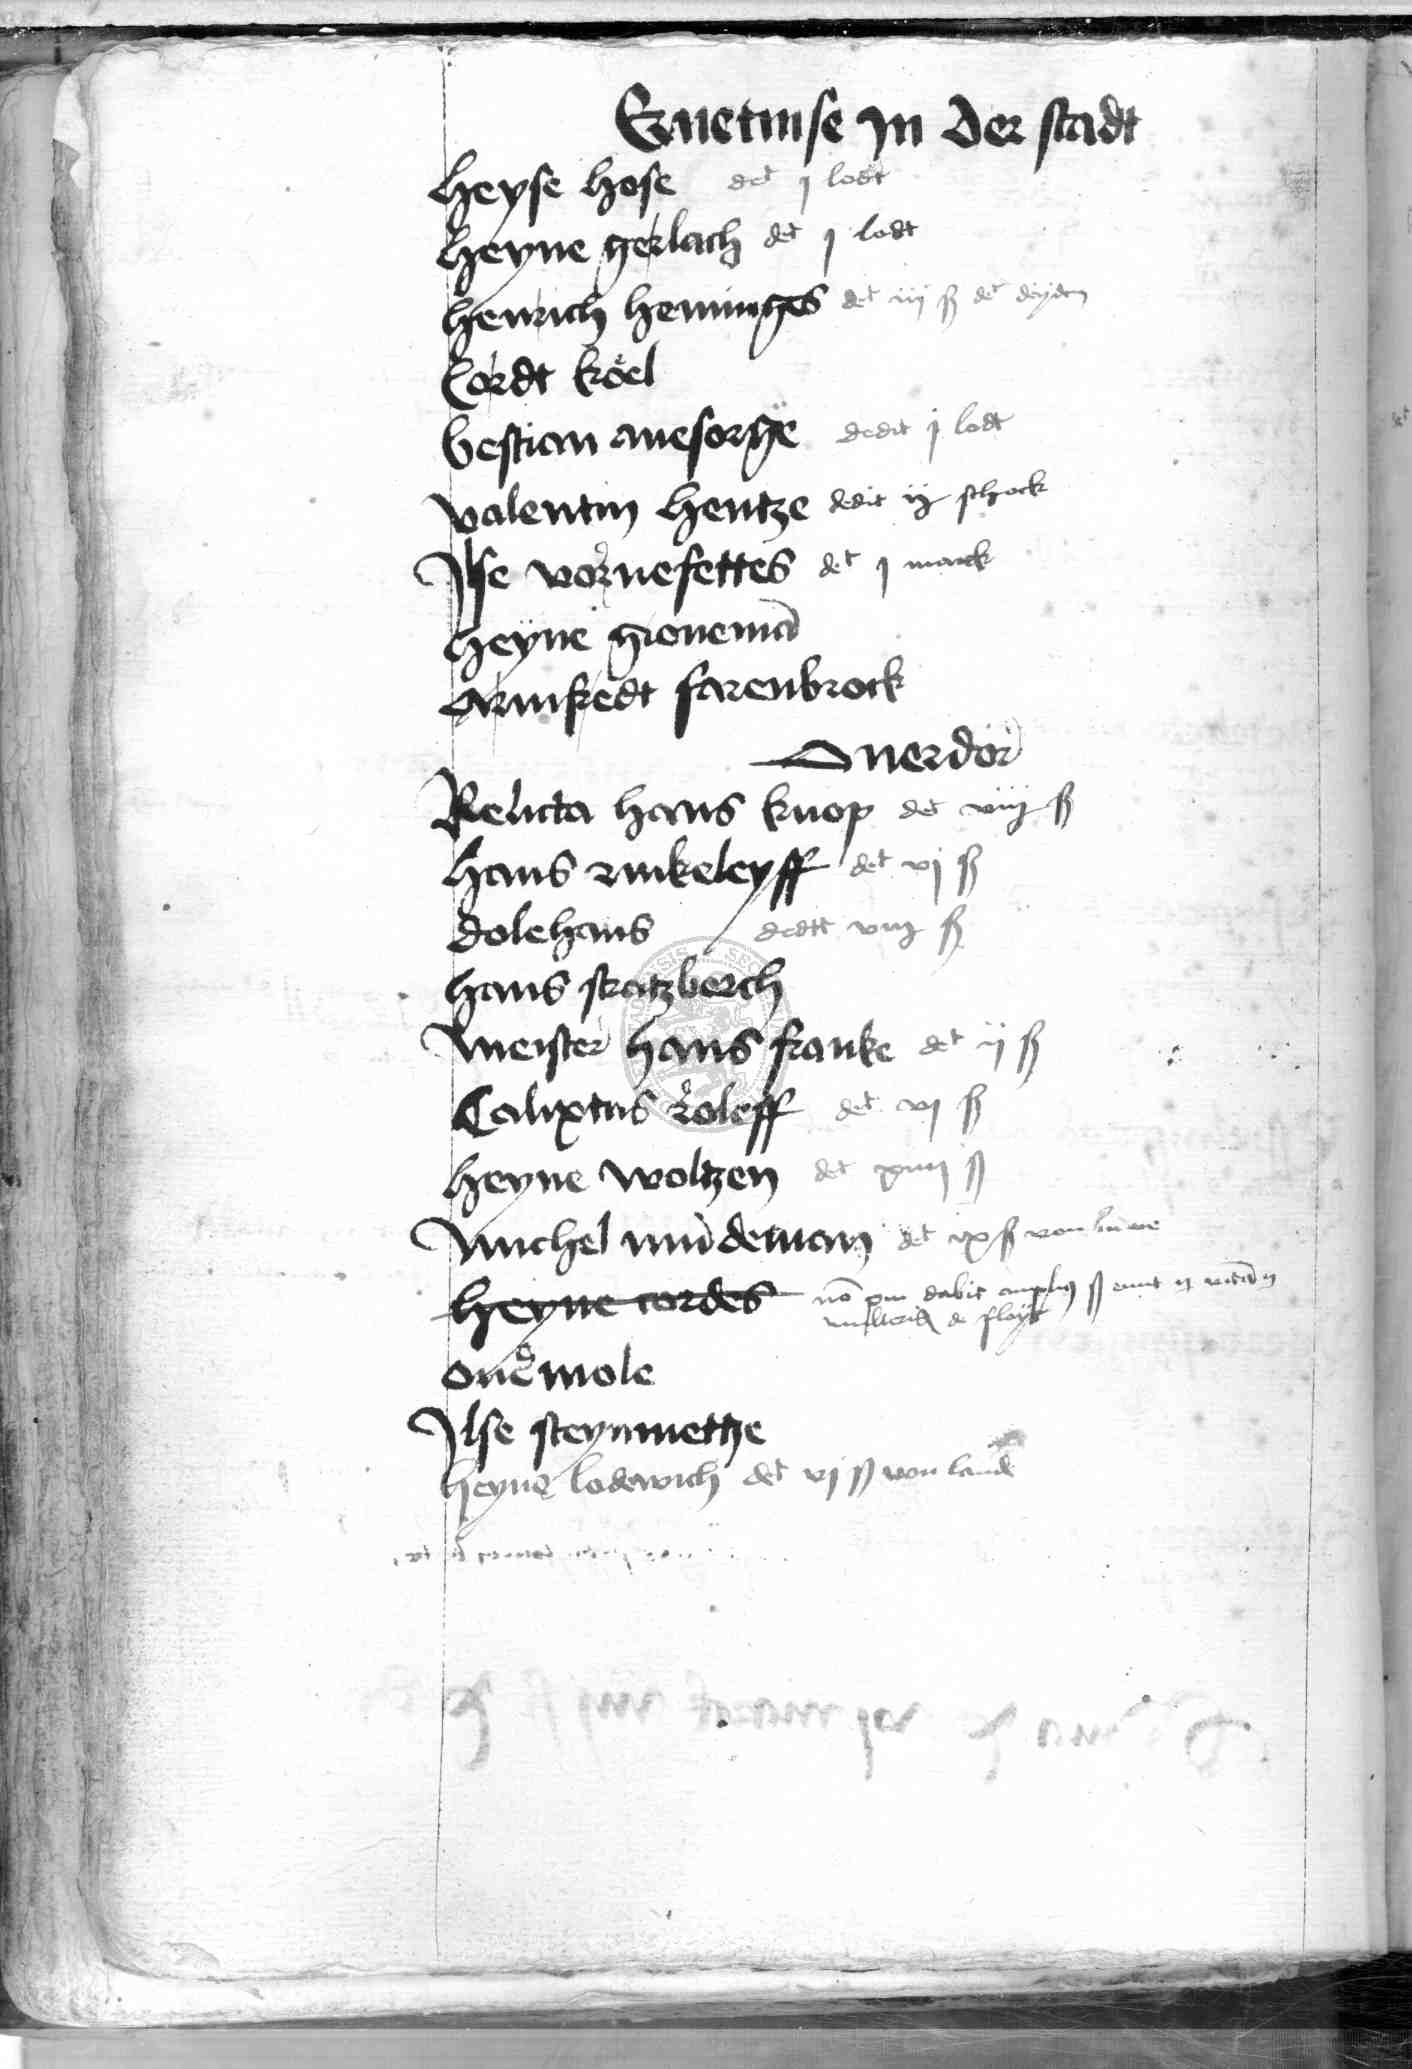 Ernetinse in der stadt
Heyse Hose det j lodt
Heyne gerlach det j lodt
Henrich Heminges det iij ß det
Cordt köel
Bestian anesorge dedit j lodt
Valentin Hentze dedit ij schock
Ilse vornefettes det j marck
Heyne gronemā
armkedt farenbrock
Ouerdor
Relicta Hans knop det viij ß
Hans rinkeleyff det vj ß
dolehans dedit viij ß
Hans stratzberch
Meister Hans franke det ij ß
Calixtus roleff det vj ß
Heyne woltzen det xiiij ß
Michel det ix ß von
Heyne cordes nō dabit
de
ouermole
Ilse steynmettze
Heyne lodewich det vj ß von lande